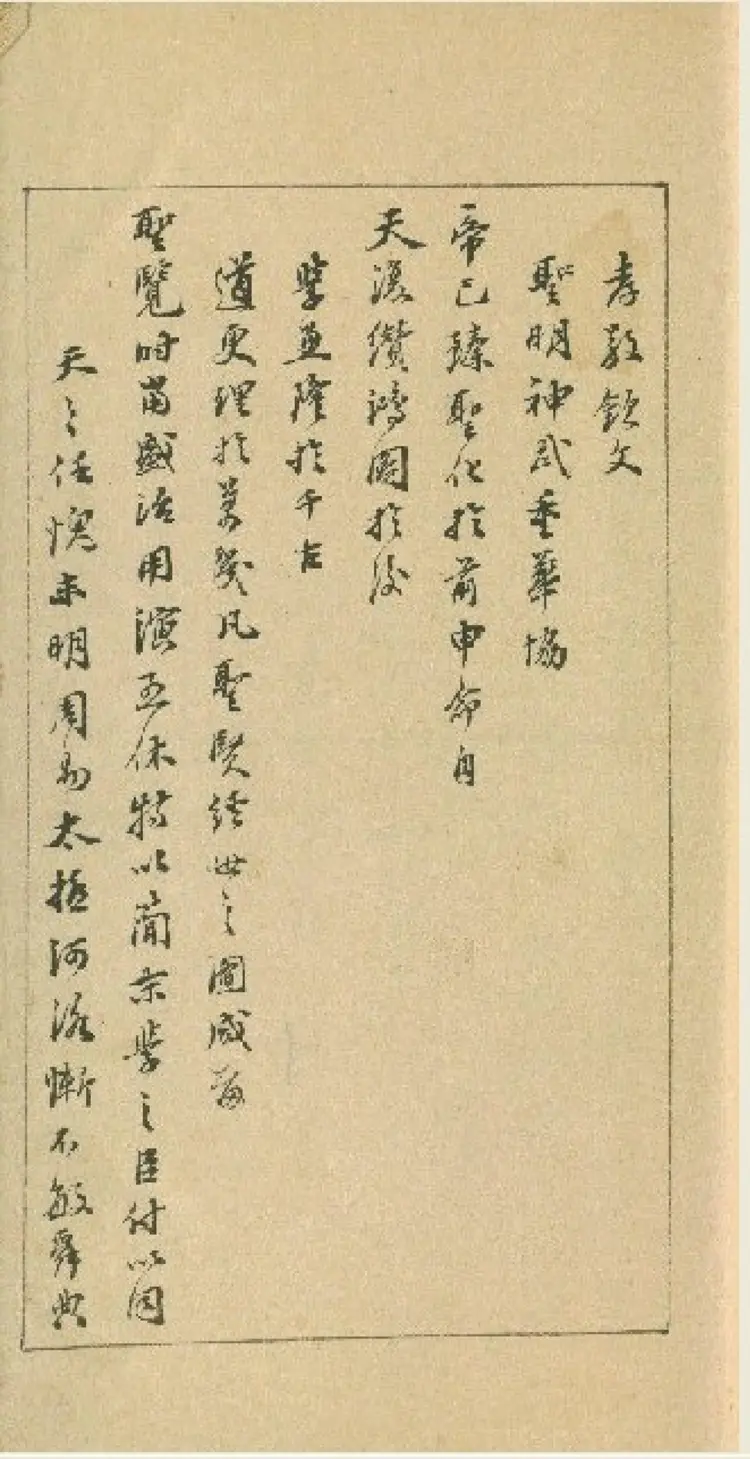 孝敬欽文
聖明神武重華協
帝已臻聖化於前申命自
天復纘鴻圖於後
學並隆於千古
道更理於萬幾凡聖賢經世之圖咸留
聖覽時當盛治用演五休特以簡末學之臣付以同
天之任愧未明周易太極河洛慚不敏舜典